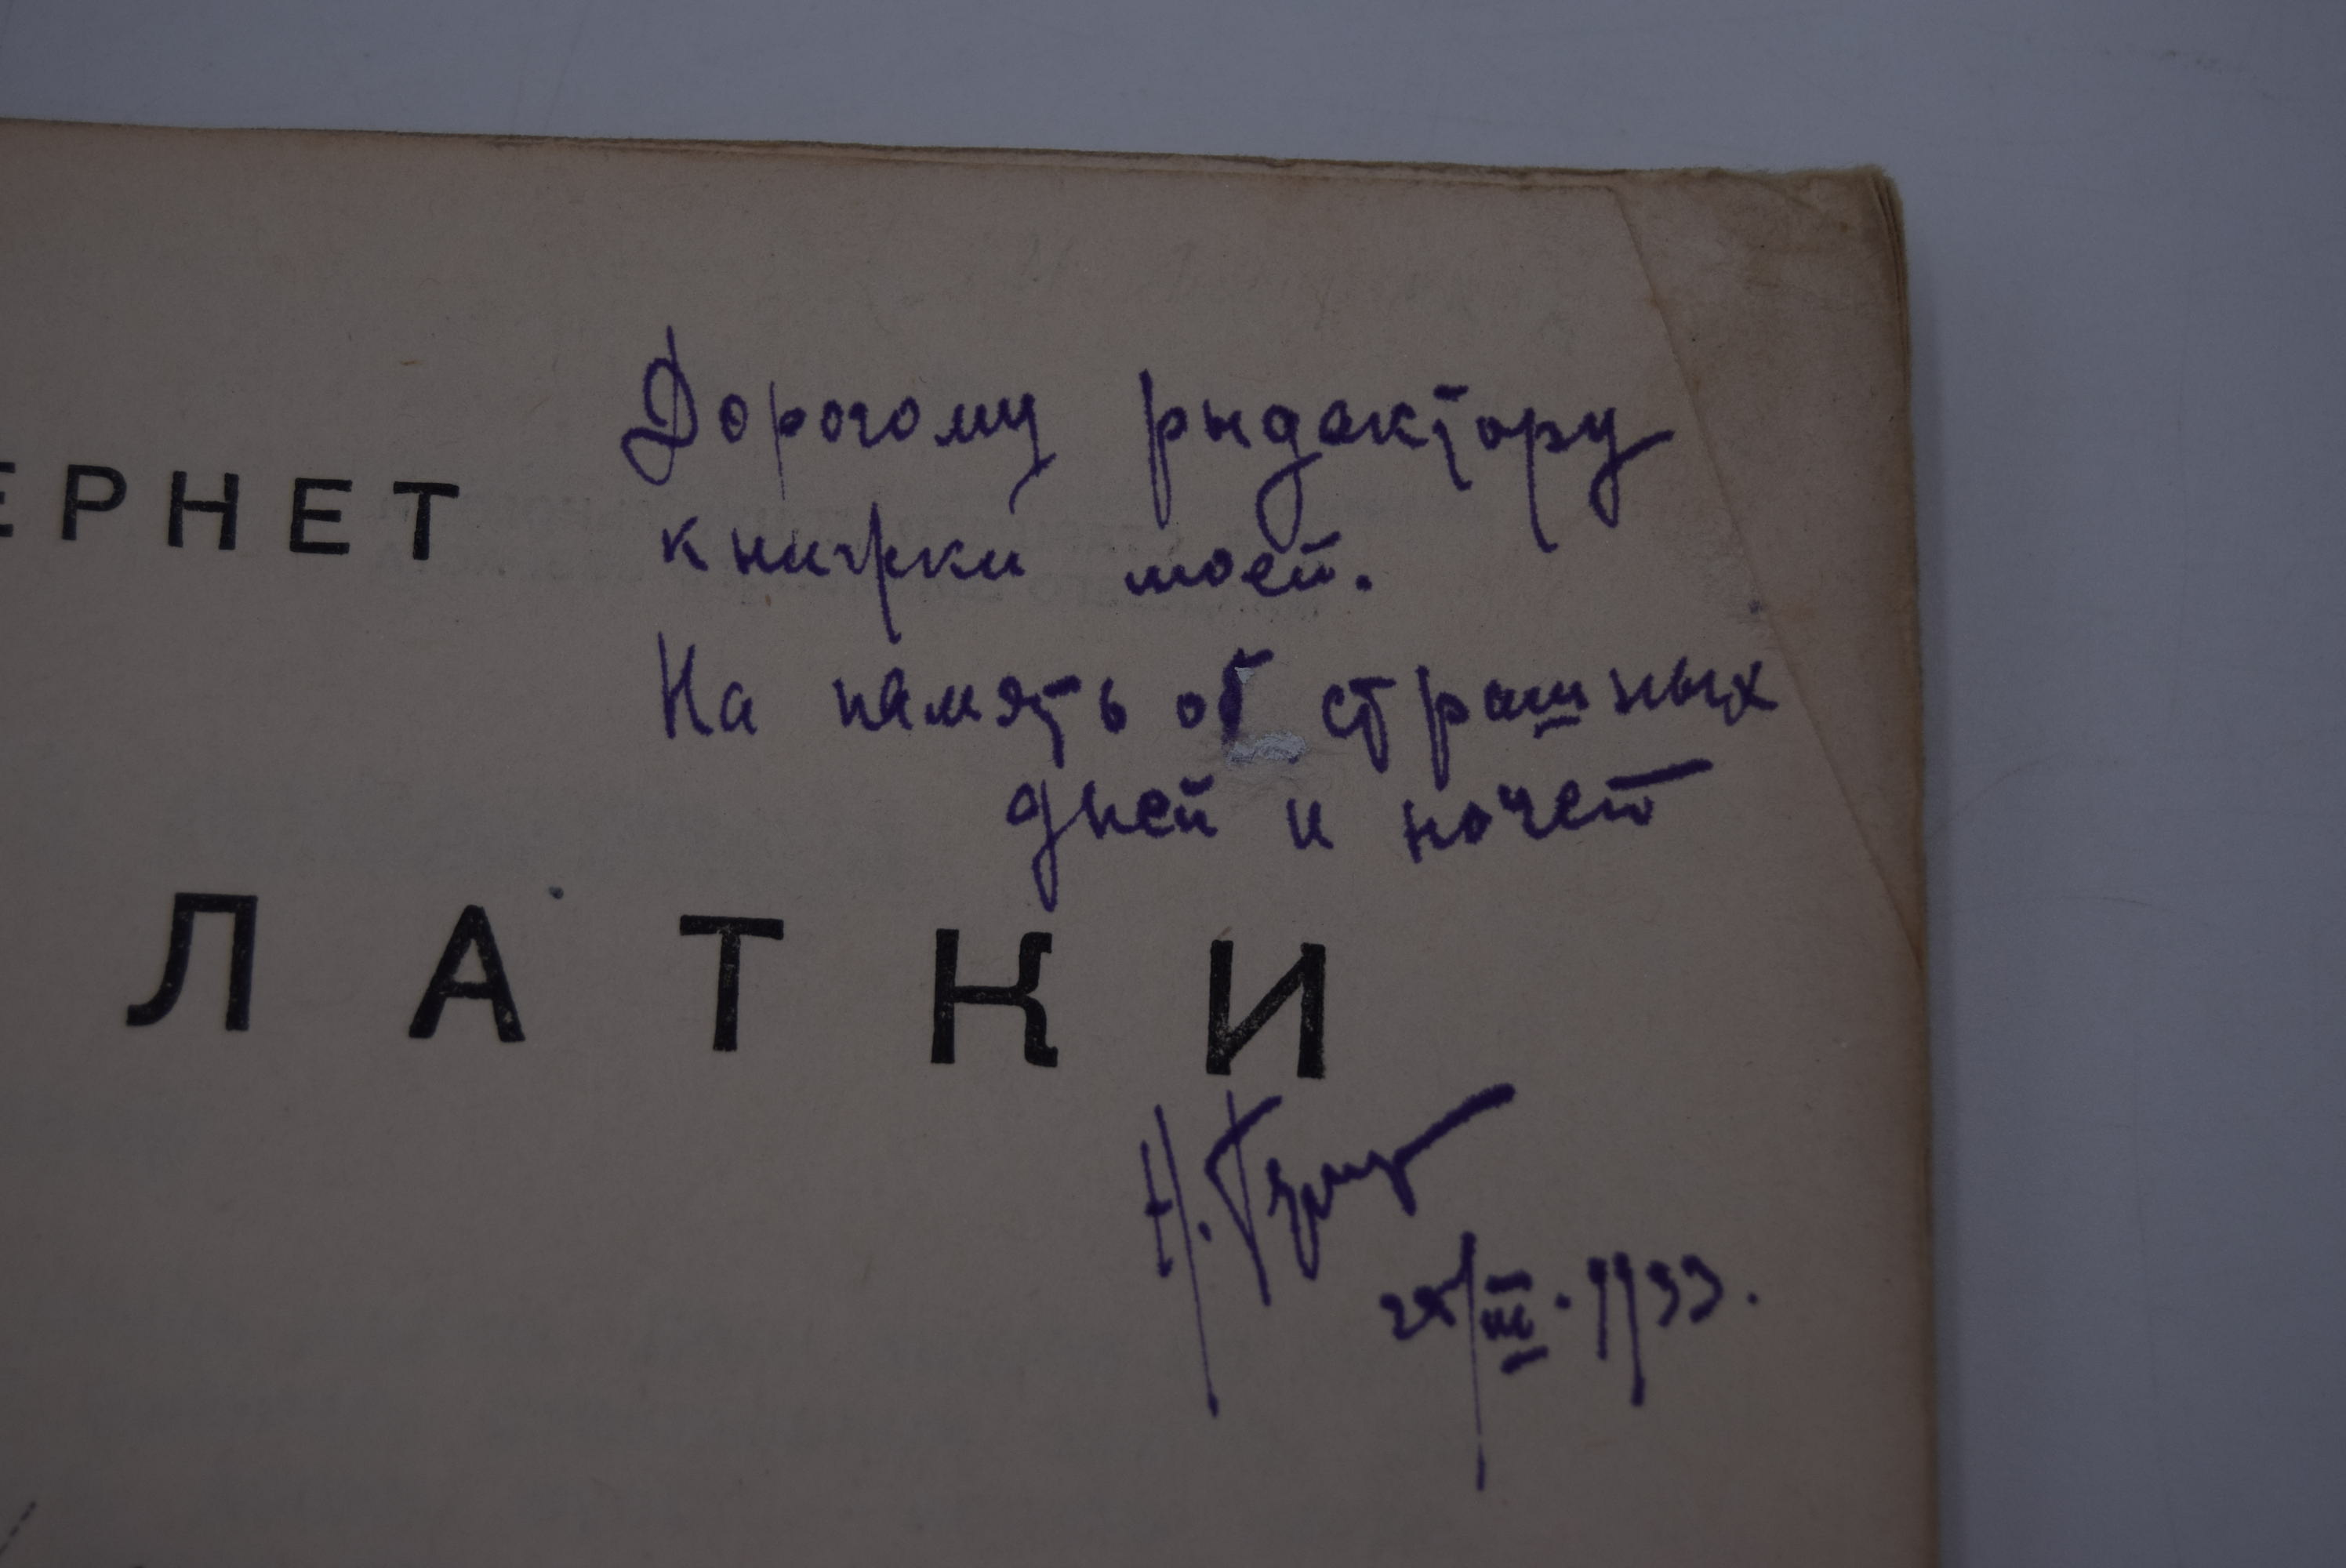 Дорогому рыдактору
ЕРНЕТ
книжки моей.
На память об страшных
дней и ночей
ЛАТКИ
28/III.1933.